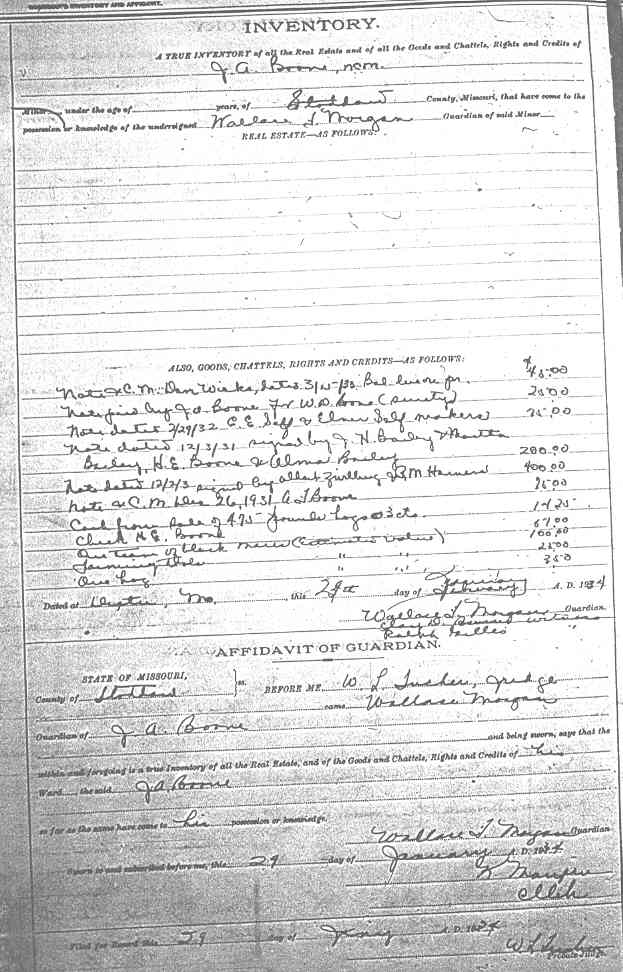 INVENTORY AND AFFIDAVIT.
INVENTORY.
A TRUE INVENTORY of all the Real Estate and of all the Goods and Chattels, Rights and Credits of
J. A. Boone, ncm.
Minor under the age of years, of Stoddard County, Missouri, that have come to the
possession or knowledge of the undersigned Wallace L. Morgan Guardian of said Minor
REAL ESTATE—AS FOLLOWS:
ALSO, GOODS, CHATTELS, RIGHTS AND CREDITS—AS FOLLOWS:
Note & C. M. Dan Wicks, dated Bal. $45.00
Note by J. A. Boone For W. D. Boone 25.00
Note dated 2/29/32 C. E. Self & Self makers 75.00
Note dated 12/3/31 signed by J. H. Bailey &
Bailey, H. E. Boone & Alma Bailey 200.00
Note dated signed by 400.00
Note & C. M. Dec 26, 1931 Boone 75.00
Cash from Sale of 475 pounds hogs @ 3 cts. 14.25
Check H. E. Boone 67.00
One team of black mares (estimated value) 100.00
Farming tools " " 25.00
One hog " " 3.50
Dated at Mo., this 29th day of January February A. D. 1934
Wallace L. Morgan Guardian.
witness
Ralph "
AFFIDAVIT OF GUARDIAN.
STATE OF MISSOURI,
County of Stoddard ss. BEFORE ME W. L. Tucker, Judge
came Wallace Morgan
Guardian of J. A. Boone and being sworn, says that the
within and foregoing is a true Inventory of all the Real Estate, and of the Goods and Chattels, Rights and Credits of his
Ward the said J A Boone
so far as the same have come to his possession or knowledge.
Wallace L. Morgan Guardian
Sworn to and subscribed before me, this 29 day of January A. D. 1934
Filed for Record this 29 day of A. D. 1934
W L Tucker
Probate Judge.